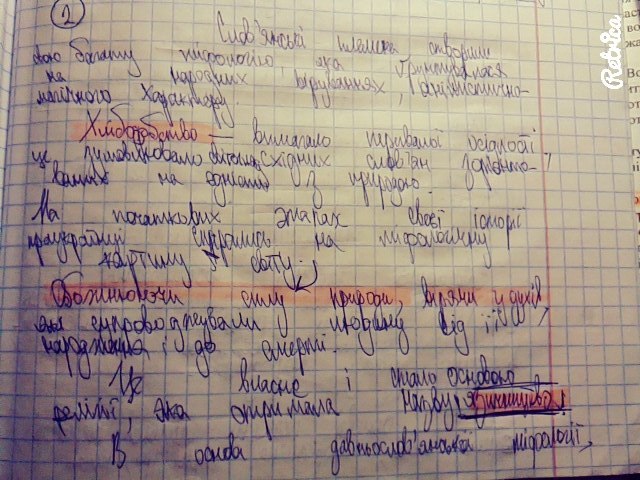 2
Слов'янські племена створили
свою багату міфологію, яка ґрунтувалася
на народних віруваннях, анімістично-
магічного характеру.
Хліборобство — вимагало тривалої осілості,
це зумовлювало східних слов'ян
на єднання з природою.
На початкових етапах своєї історії
праукраїнці спирались на міфологічну
картину світу.
Обожнюючи силу природи, вірили у духів,
які супроводжували людину від її
народження і до смерті.
Це власне і стало основою
релігії, яка отримала назву язичництво.
В основі давньослов'янська міфології,
Retrica